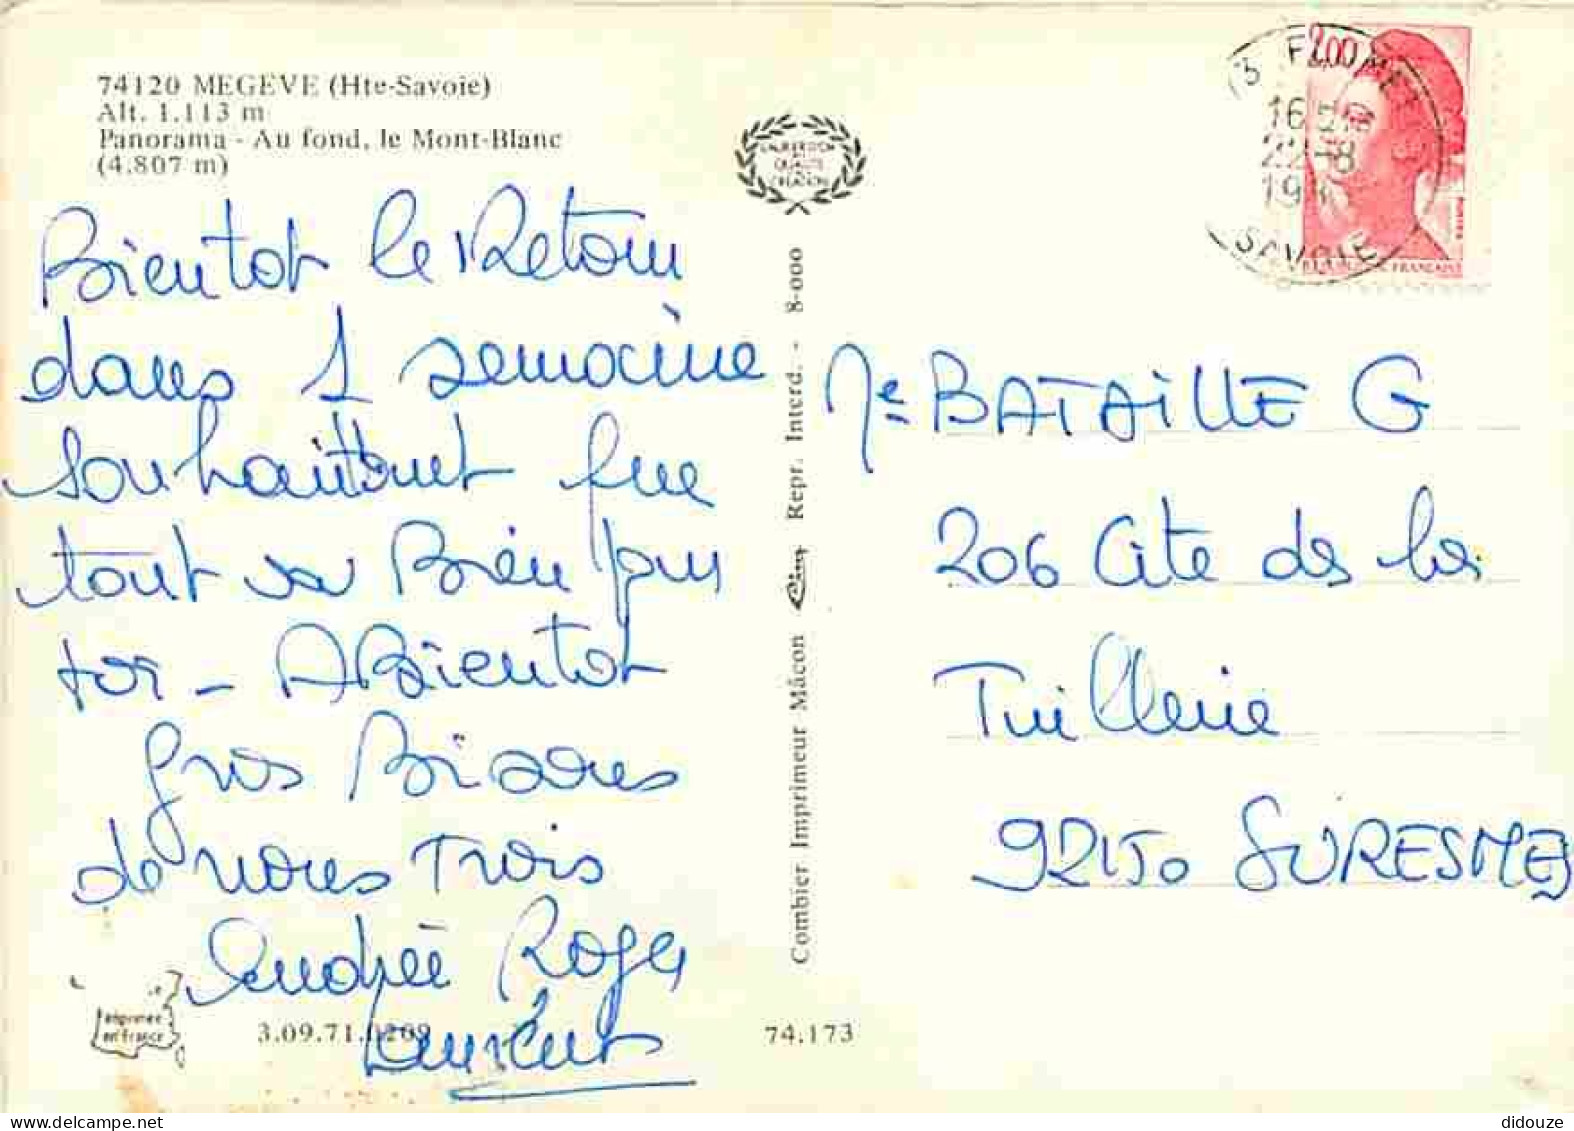 74120 MEGEVE (Hte-Savoie)
Alt. 1.113 m
Panorama - Au fond, le Mont-Blanc
(4.807 m)
Bientot le Retour
dans 1 semaine
souhaittant que
tout va Bien pour
toi - A Bientot
gros Bisous
de nous Trois
Andrée Roger
Laurent
QUALITÉ
CREATION
2,00
FLUMET
16
22-8
19
SAVOIE
FRANÇAISE
Me BATAiLLE G
206 Cite de la
Tuillerie
92150 SURESNES
Combier Imprimeur Mâcon Cim Repr. Interd. - 8-000
imprimée
en France
3.09.71.0209
74.173
didouze